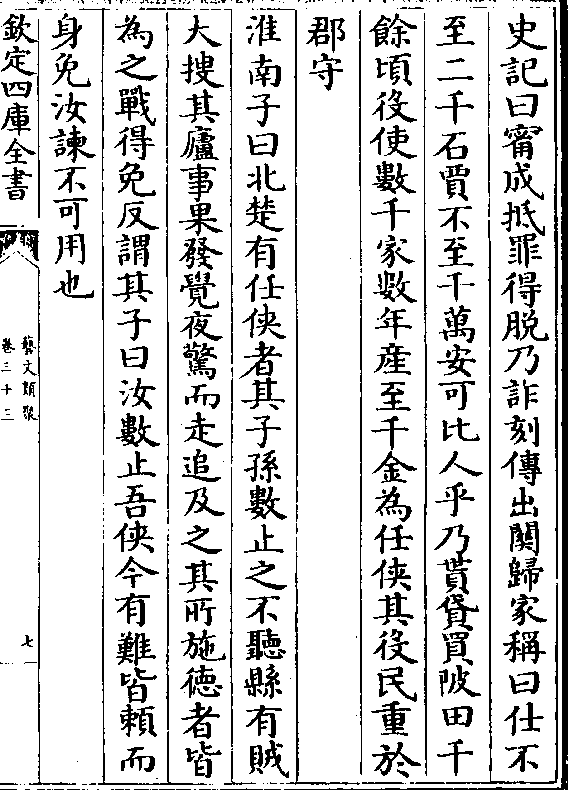 史記曰甯成抵罪得脱乃詐刻傳出關歸家稱曰仕不
至二千石賈不至千萬安可比人乎乃貰貸買陂田千
餘頃役使數千家數年産至千金為任俠其役民重於
郡守
淮南子曰北楚有任俠者其子孫數止之不聽縣有賊
大搜其廬事果發覺夜驚而走追及之其所施德者皆
為之戰得免反謂其子曰汝數止吾俠今有難皆頼而
身免汝諫不可用也
欽定四庫全書
藝文類聚
卷三十三
七